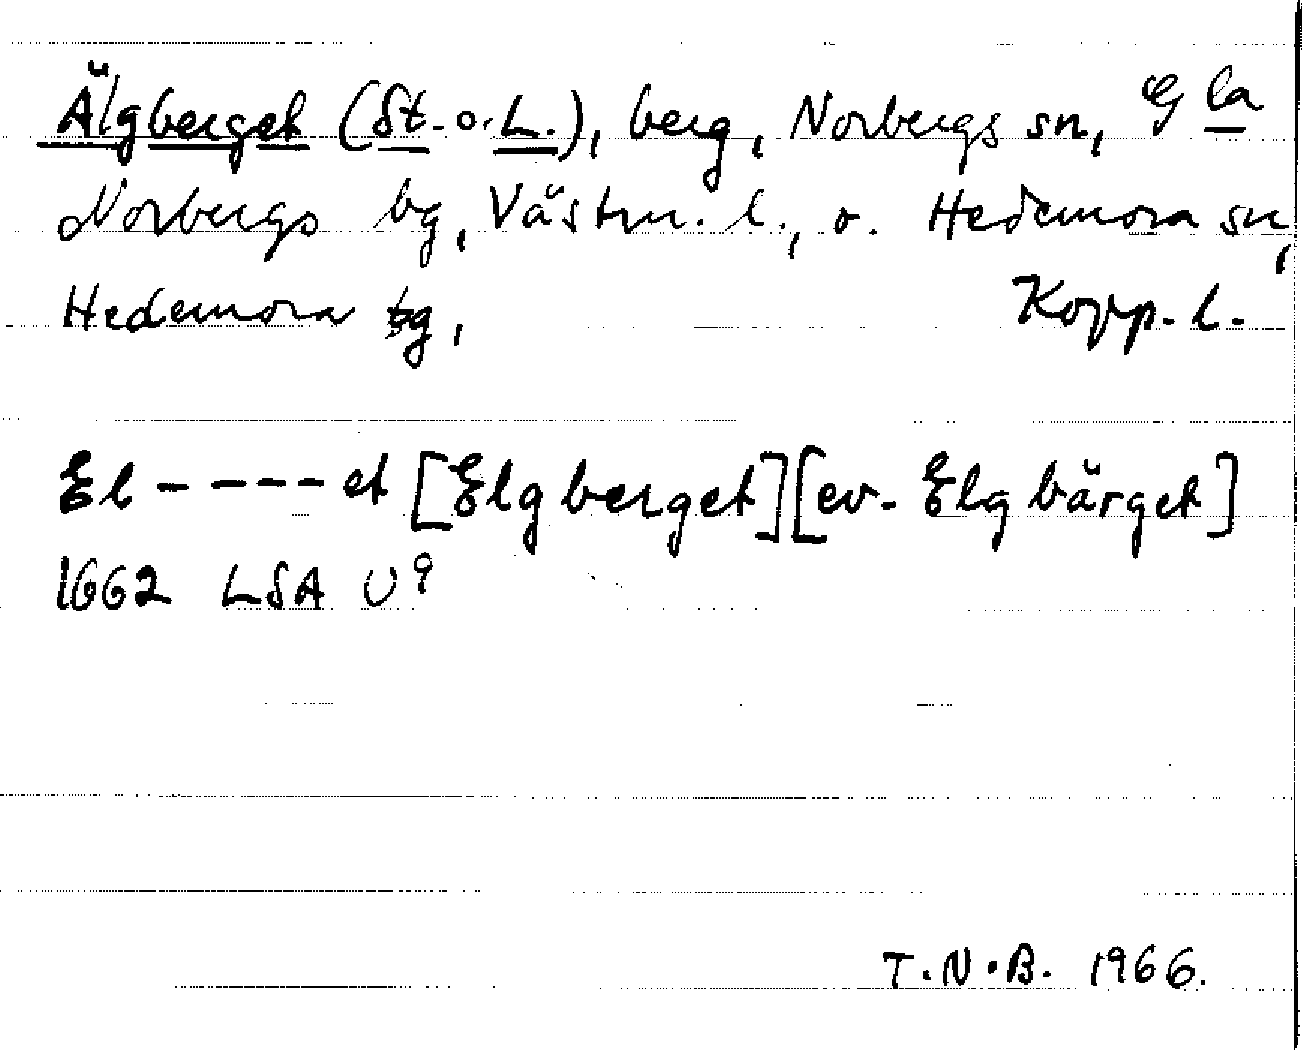 Älgberget (St. o. L.), berg, Norbergs sn, G la
Norbergs bg, Västm. l., o. Hedemora sn,
Hedemora tg, Kopp. l.
El - - - - - et [Elgberget] [ev. Elgbärget]
1662 LSA U 9
T.N.B. 1966.